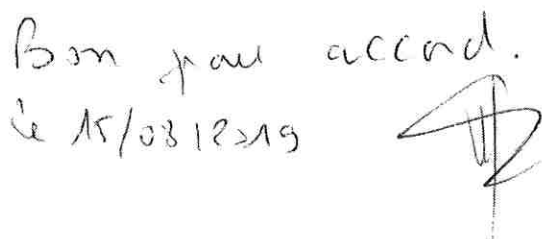 Bon pour accord.
le 15/03/2019